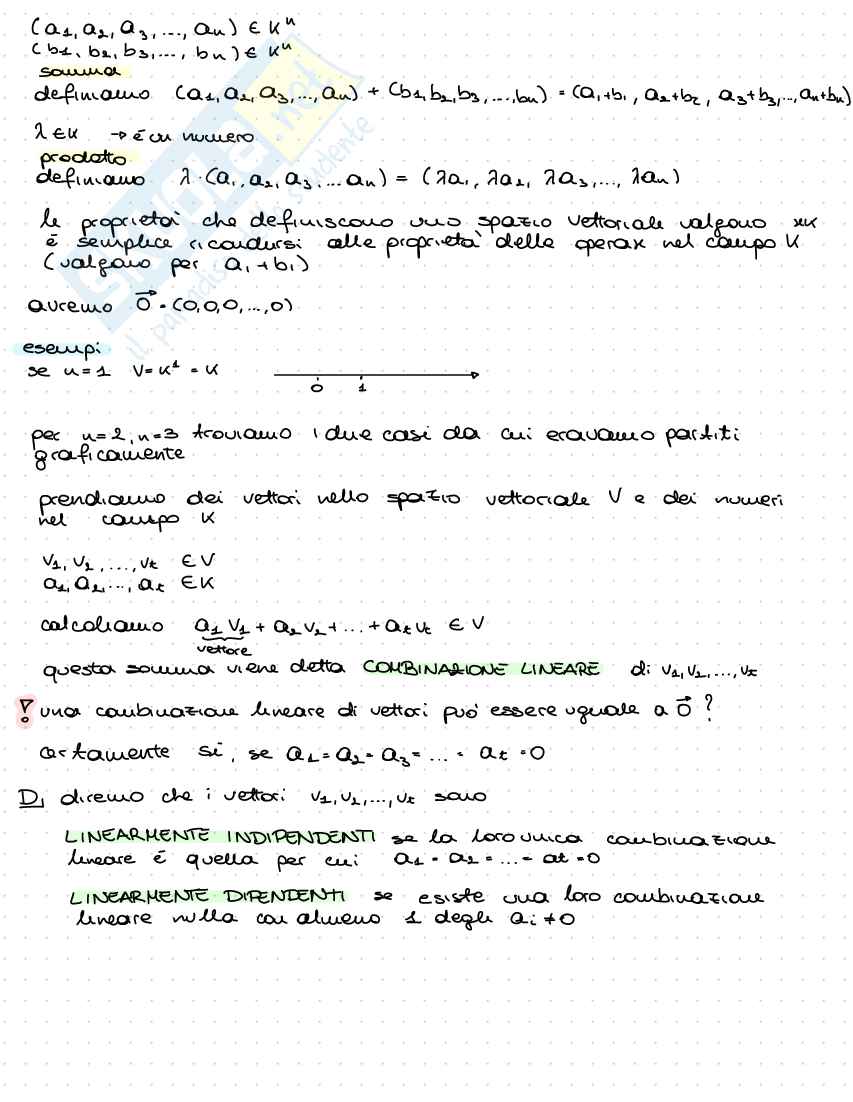 (a1, a2, a3, ..., an) ∈ Kⁿ
(b1, b2, b3, ..., bn) ∈ Kⁿ
somma
definiamo (a1, a2, a3, ..., an) + (b1, b2, b3, ..., bn) = (a1+b1, a2+b2, a3+b3, ..., an+bn)
λ ∈ K → è un numero
prodotto
definiamo λ · (a1, a2, a3, ... an) = (λa1, λa2, λa3, ..., λan)
le proprietà che definiscono uno spazio vettoriale valgono xk
è semplice ricondursi alle proprietà delle operax nel campo K
(valgono per a1+b1)
avremo 0⃗ = (0,0,0,...,0)
esempi
se n=1 V=K¹ = K
0 1
per n=2, n=3 troviamo i due casi da cui eravamo partiti
graficamente
prendiamo dei vettori nello spazio vettoriale V e dei numeri
nel campo K
v1, v2, ..., vt ∈ V
a1, a2, ..., at ∈ K
calcoliamo a1 v1 + a2 v2 + ... + at vt ∈ V
vettore
questa somma viene detta COMBINAZIONE LINEARE di v1, v2, ..., vt
! una combinazione lineare di vettori può essere uguale a 0⃗ ?
certamente sì, se a1 = a2 = a3 = ... = at = 0
D| diremo che i vettori v1, v2, ..., vt sono
LINEARMENTE INDIPENDENTI se la loro unica combinazione
lineare è quella per cui a1 = a2 = ... = at = 0
LINEARMENTE DIPENDENTI se esiste una loro combinazione
lineare nulla con almeno 1 degli ai ≠ 0
SKUOLA.net
il paradiso dello studente